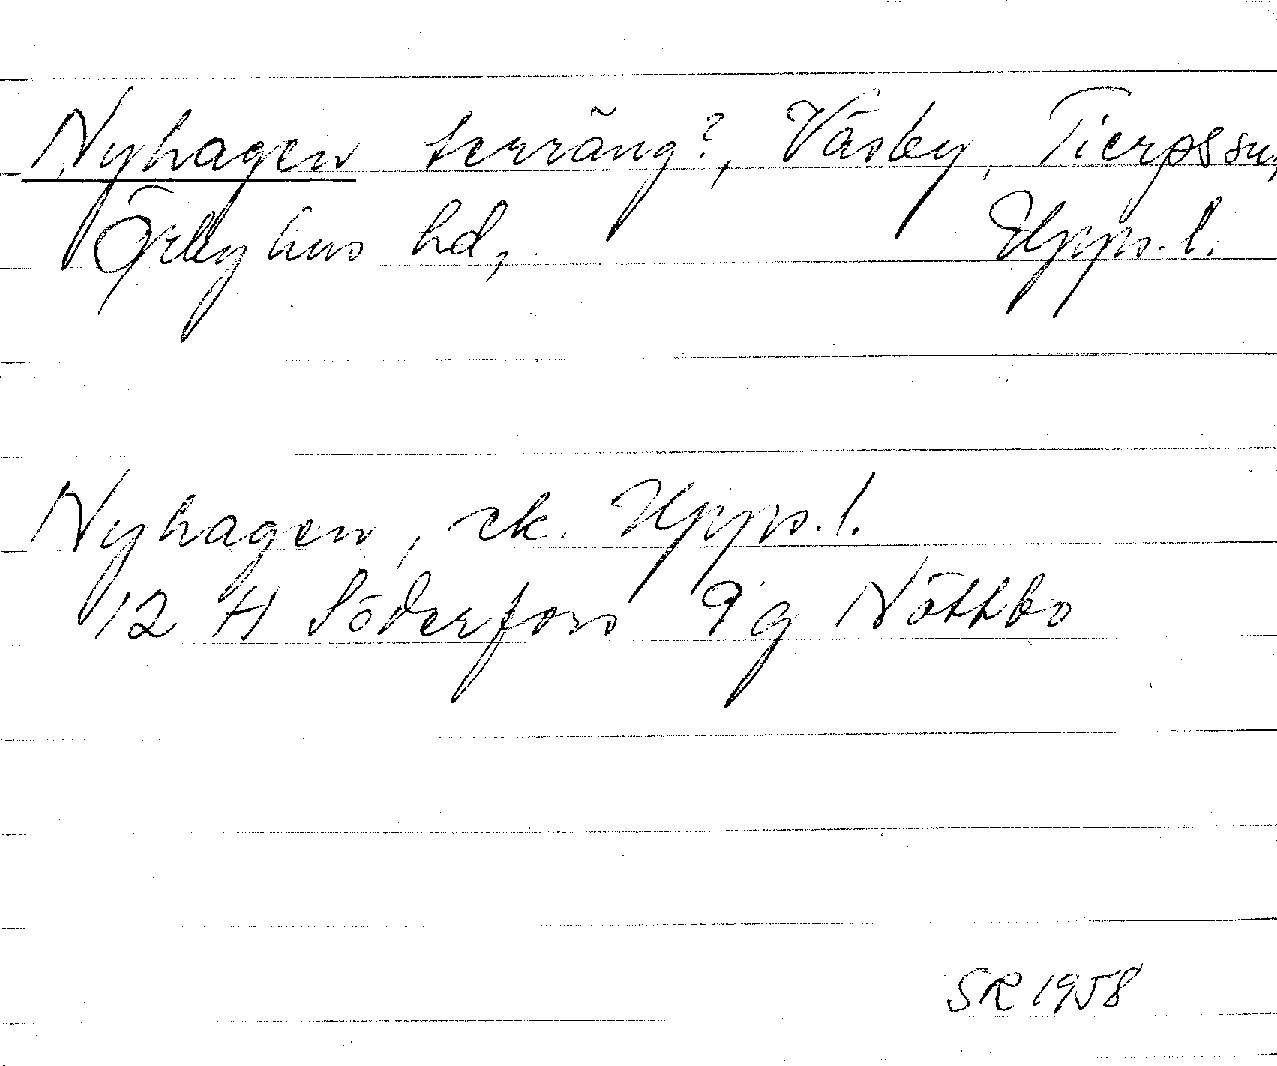 Nyhagen terräng?, Väsby, Tierps sn,
Örbyhus hd, Upps. l.
Nyhagen, ek. Upps. l.
12 H Söderfors 9 g Nöttbo
SR 1958